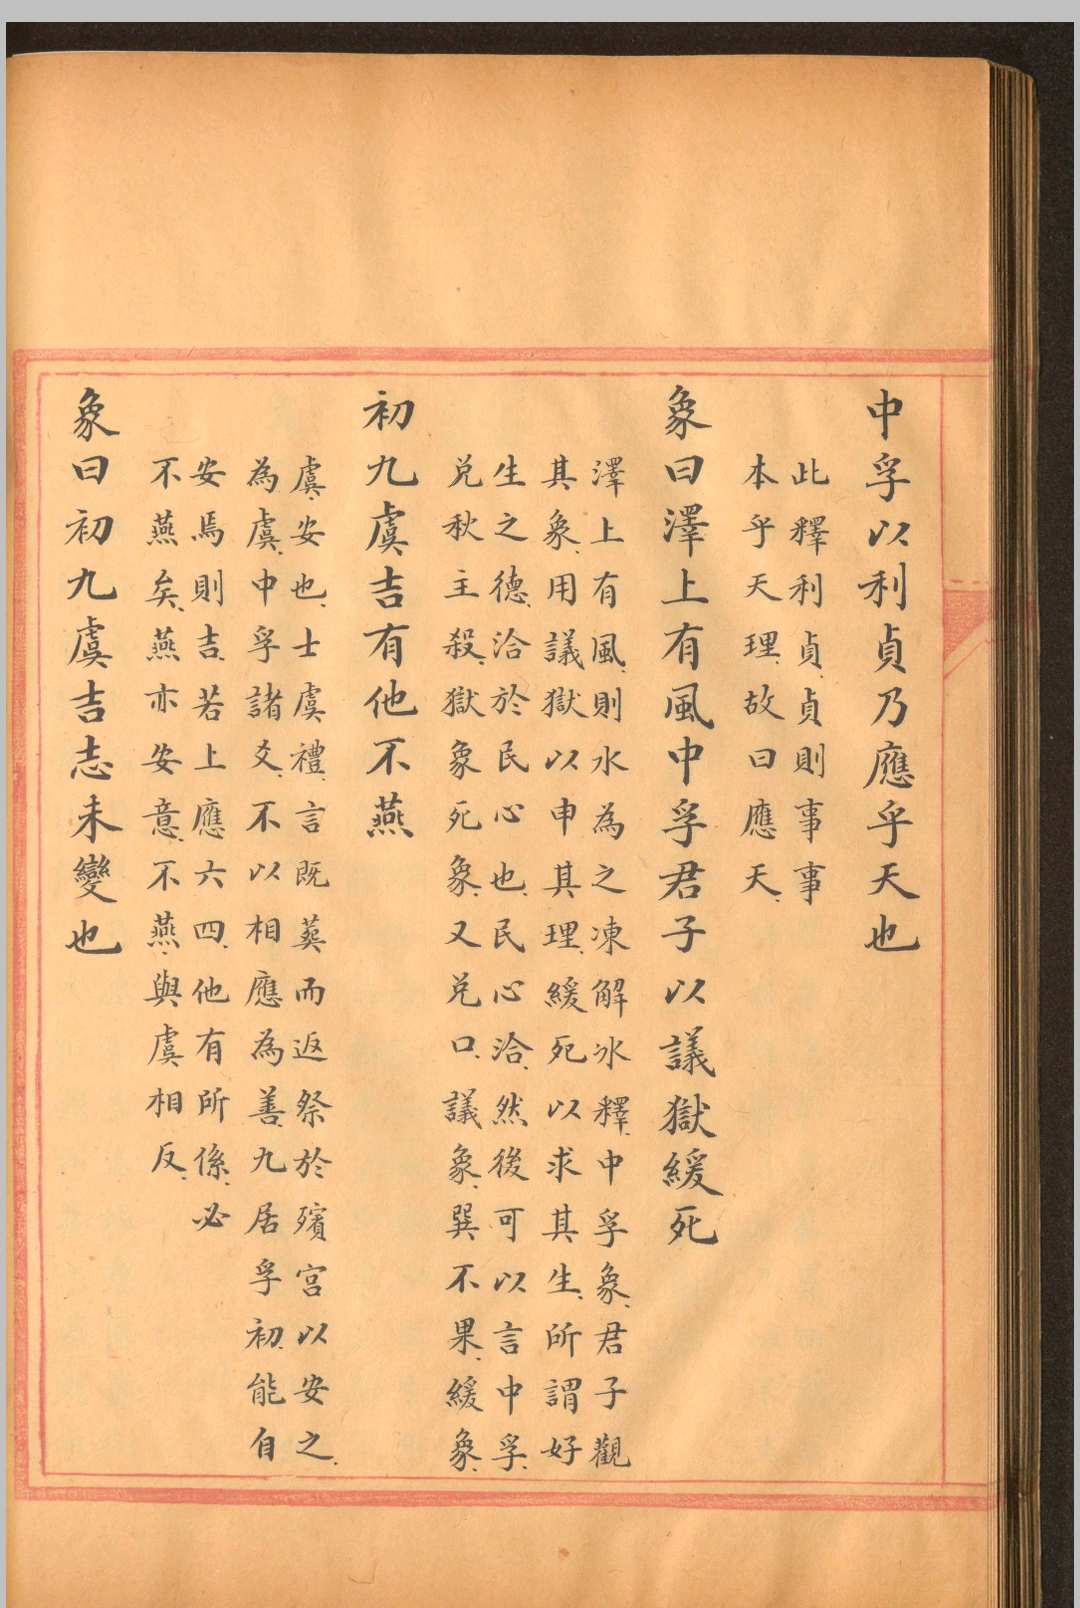 中孚以利貞乃應乎天也
此釋利貞貞則事事
本乎天理故曰應天
象曰澤上有風中孚君子以議獄緩死
澤上有風則水為之凍解冰釋中孚象君子觀
其象用議獄以申其理緩死以求其生所謂好
生之德洽於民心也民心洽然後可以言中孚
兌秋主殺獄象死象又兌口議象巽不果緩象
初九虞吉有他不燕
虞安也士虞禮言既葬而返祭於殯宮以安之
為虞中孚諸爻不以相應為善九居孚初能自
安焉則吉若上應六四他有所係必
不燕矣燕亦安意不燕與虞相反
象曰初九虞吉志未變也